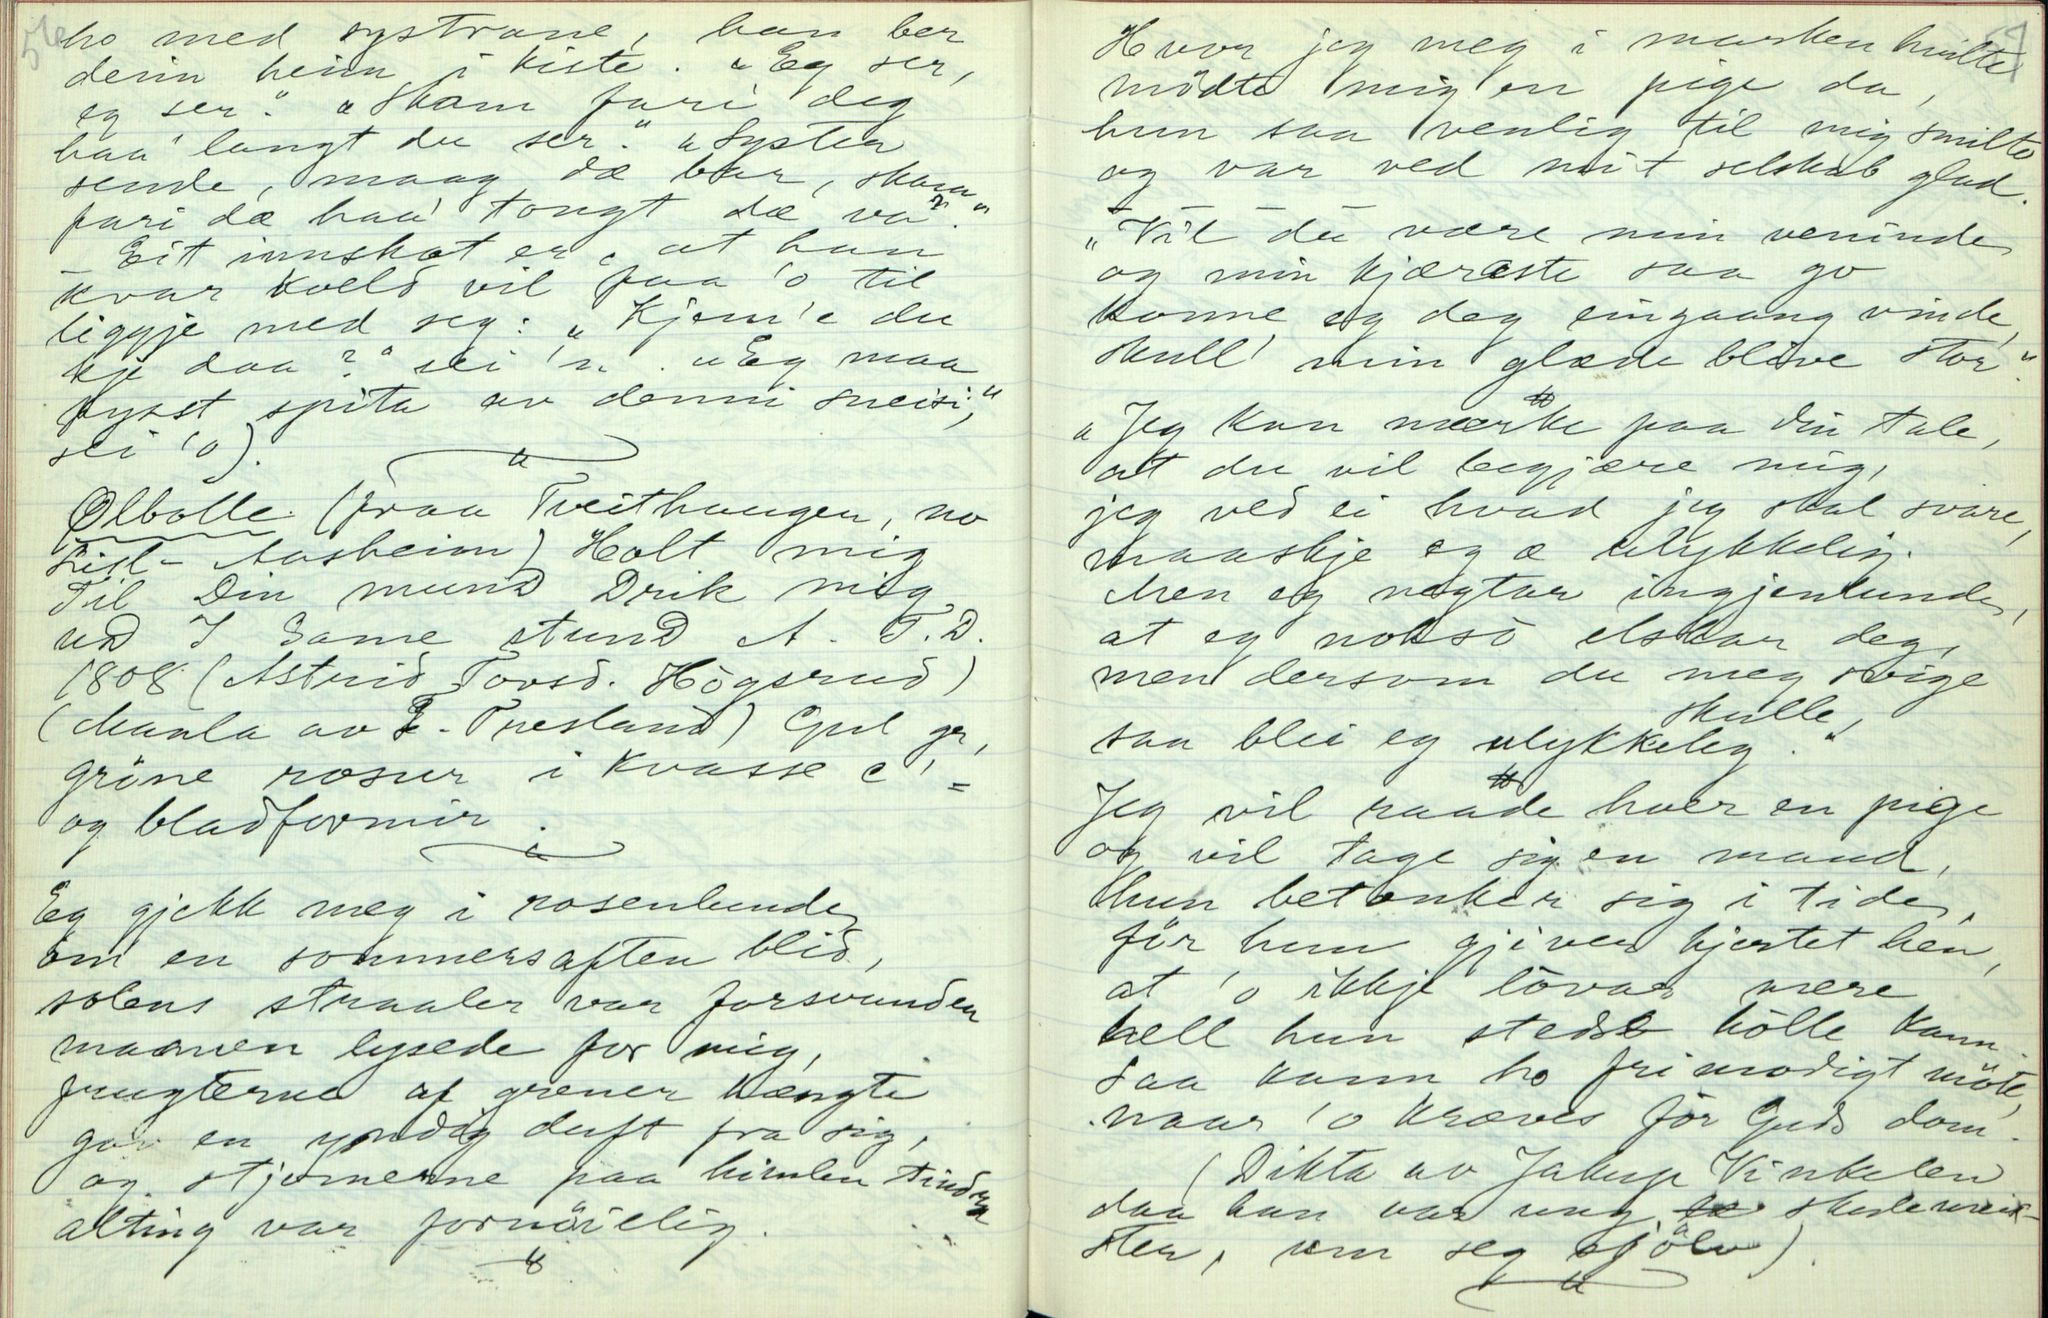 56
ho med systrane, han ber
denn heim i kiste. "Eg ser,
eg ser." "Skam fari deg
haa' langt du ser." "Systen
sende, maag dæ bar, skam
fari dæ haa' tongt dæ va'".
Eit innskot er, at han
kvar kveld vil faa 'o til
liggje med seg: "Kjem'e du
kje daa?" sei 'n. "Eg maa
fysst spita av denni sneisi,"
sei 'o).
Ølbolle (fraa Tveithaugen, no
Lisl-Aasheim) Holt mig
Til Din mund Drik mig
ud I Same stund A. T. D.
1808 (Astrid Tovsd. Högsrud)
(Maala av E. Tresland) Gul gr,
gröne rosur i kvasse c'=
og bladformir.
Eg gjekk meg i rosenlunde
om en sommersaften blid,
solens straaler var forsvunden
maanen lysede for mig,
frugterne af grener hængte
gav en yndig duft fra sig,
og stjernerne paa himlen tindra
alting var fornöielig.
57
Hvor jeg meg i marken hvilte
mödte mig en pige da,
hun saa venlig til mig smilte
og var ved mit selskab glad.
"Vil du være min veninde
og min kjæreste saa go
konne eg deg eingaang vinde,
skull' min glæde blive stor."
"Jeg kan mærke paa din tale,
at du vil begjære mig,
jeg ved ei hvad jeg skal svare,
maaskje eg æ ulykkelig.
Men eg negtar ingjenlunde,
at eg noksö elskar deg,
men dersom du meg svige
skulle,
saa blei eg ulykkeleg."
Jeg vil raade hver en pige
og vil tage sig en mand,
hun betenker sig i tide,
för hun gjiver hjertet hen,
at 'o ikkje lövar mere
hell hun stedse hölle kann
saa kann ho frimodigt möte,
naar 'o kræves för Guds dom.
(Dikta av Jakup Vinkelen
daa han var ung skulemeis-
ter, um seg sjölv).